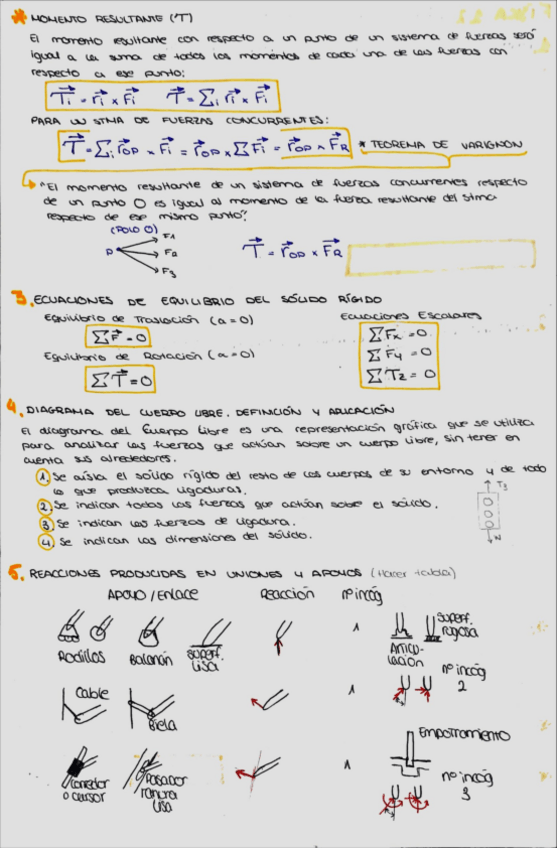 * MOMENTO RESULTANTE (T)
El momento resultante con respecto a un punto de un sistema de fuerzas será
igual a la suma de todos los momentos de cada una de las fuerzas con
respecto a ese punto:
T⃗i = r⃗i × F⃗i   T⃗ = Σi r⃗i × F⃗i
PARA UN STMA DE FUERZAS CONCURRENTES:
T⃗ = Σi r⃗OP × F⃗i = r⃗OP × Σ F⃗i = r⃗OP × F⃗R * TEOREMA DE VARIGNON
"El momento resultante de un sistema de fuerzas concurrentes respecto
de un punto O es igual al momento de la fuerza resultante del stma
respecto de ese mismo punto"
(POLO O)
P F1
F2
F3
T⃗ = r⃗OP × F⃗R
3. ECUACIONES DE EQUILIBRIO DEL SÓLIDO RÍGIDO
Equilibrio de Traslación (a=0)   Ecuaciones Escalares
Σ F⃗ = 0
Equilibrio de Rotación (α=0)
Σ T⃗ = 0
Σ Fx = 0
Σ Fy = 0
Σ Tz = 0
4. DIAGRAMA DEL CUERPO LIBRE. DEFINICIÓN Y APLICACIÓN
El diagrama del Cuerpo Libre es una representación gráfica que se utiliza
para analizar las fuerzas que actúan sobre un cuerpo libre, sin tener en
cuenta sus alrededores.
1. Se aísla el sólido rígido del resto de los cuerpos de su entorno y de todo
lo que produzca ligaduras.
2. Se indican todas las fuerzas que actúan sobre el sólido.
3. Se indican las fuerzas de ligadura.
4. Se indican las dimensiones del sólido.
5. REACCIONES PRODUCIDAS EN UNIONES Y APOYOS (Hacer tabla)
APOYO/Enlace   Reacción   nº incóg
Rodillos   Balancín   superf. Lisa   1
Articulación   superf. rugosa
nº incóg 2
Cable   Biela   1
Corredor o cursor   Pasador ranura lisa   1
Empotramiento
nº incóg 3